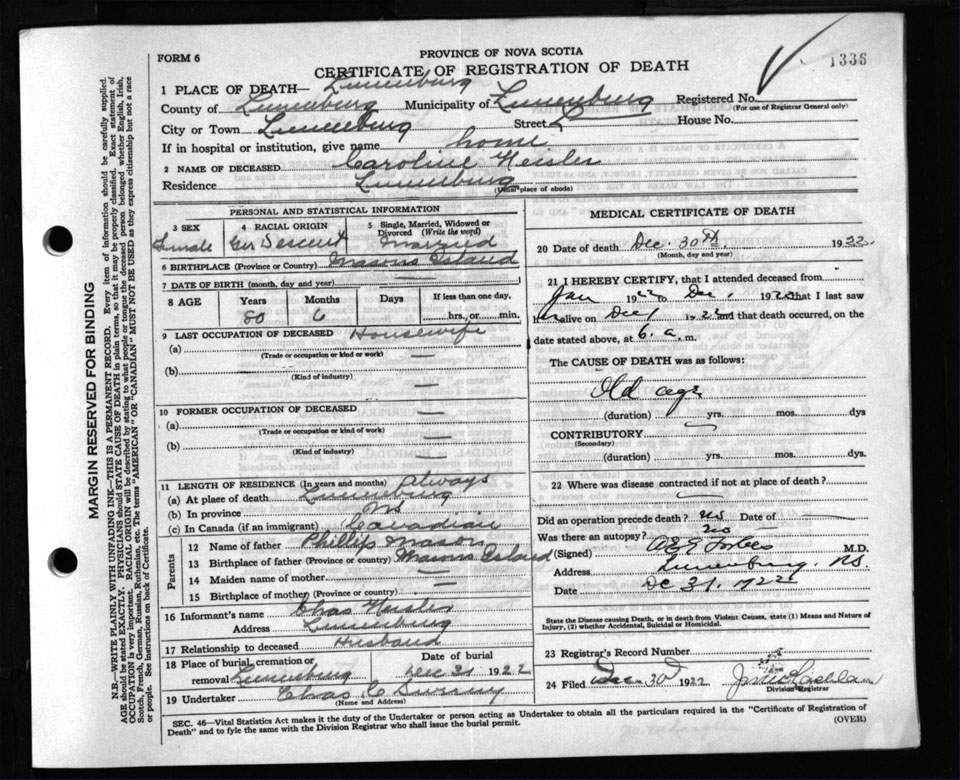 PROVINCE OF NOVA SCOTIA
FORM 6
CERTIFICATE OF REGISTRATION OF DEATH
1336
1 PLACE OF DEATH— Lunenburg
County of Lunenburg Municipality of Lunenburg Registered No.
(For use of Registrar General only)
City or Town Lunenburg Street House No.
If in hospital or institution, give name home
2 NAME OF DECEASED Caroline Heisler
Residence Lunenburg
(Usual place of abode)
PERSONAL AND STATISTICAL INFORMATION
3 SEX 4 RACIAL ORIGIN 5 Single, Married, Widowed or Divorced (Write the word)
Female Ger Descent Married
6 BIRTHPLACE (Province or Country) Masons Island
7 DATE OF BIRTH (month, day and year)
8 AGE Years Months Days If less than one day,
80 6 hrs., or min.
9 LAST OCCUPATION OF DECEASED Housewife
(a) —
(Trade or occupation or kind or work)
(b) —
(Kind of industry)
10 FORMER OCCUPATION OF DECEASED —
(a) —
(Trade or occupation or kind of work)
(b) —
(Kind of industry)
11 LENGTH OF RESIDENCE (In years and months) Always
(a) At place of death Lunenburg
(b) In province NS
(c) In Canada (if an immigrant) Canadian
Parents
12 Name of father Phillip Mason
13 Birthplace of father (Province or country) Masons Island
14 Maiden name of mother —
15 Birthplace of mother (Province or country) —
16 Informant's name Chas Heisler
Address Lunenburg
17 Relationship to deceased Husband
18 Place of burial, cremation or Date of burial
removal Lunenburg Dec 31 1922
19 Undertaker Chas C
(Name and Address)
MEDICAL CERTIFICATE OF DEATH
20 Date of death Dec. 30th, 1922
(Month, day and year)
21 I HEREBY CERTIFY, that I attended deceased from
Jan 1922 to Dec, 1922 that I last saw
alive on Dec 1922 and that death occurred, on the
date stated above, at 6. a. m.
The CAUSE OF DEATH was as follows:
Old age
(duration) yrs. mos. dys
CONTRIBUTORY
(Secondary)
(duration) yrs. mos. dys.
22 Where was disease contracted if not at place of death?
Did an operation precede death? no Date of —
Was there an autopsy? no
(Signed) Forbes M.D.
Address Lunenburg. NS.
Date Dc 31. 1922
State the Disease causing Death, or in death from Violent Causes, state (1) Means and Nature of
Injury, (2) whether Accidental, Suicidal or Homicidal.
23 Registrar's Record Number
24 Filed Dec 30 1922
Division Registrar
SEC. 46—Vital Statistics Act makes it the duty of the Undertaker or person acting as Undertaker to obtain all the particulars required in the "Certificate of Registration of
Death" and to fyle the same with the Division Registrar who shall issue the burial permit.
(OVER)
MARGIN RESERVED FOR BINDING
N.B.—WRITE PLAINLY WITH UNFADING INK—THIS IS A PERMANENT RECORD. Every item of information should be carefully supplied.
AGE should be stated EXACTLY. PHYSICIANS should STATE CAUSE OF DEATH in plain terms, so that it may be properly classified. Exact statement of
OCCUPATION is very important. RACIAL ORIGIN will be described by stating to what people or tongue the deceased person belonged whether English, Irish,
Scotch, French, German, Russian, Ruthenian, etc. The terms "AMERICAN" OR "CANADIAN" MUST NOT BE USED as they express citizenship but not a race
or people. See instructions on back of Certificate.